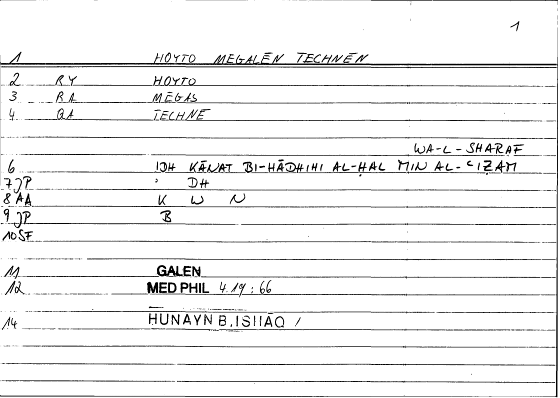 1
1 HOYTO MEGALĒN TECHNĒN
2 RY HOYTO
3 RA MEGAS
4 QA TECHNE
WA-L-SHARAF
6 IDH KĀNAT BI-HĀDHIHI AL-ḤAL MIN AL-ʿIẒAM
7 JP ʾ DH
8 AA K W N
9 JP B
10 SF
11 GALEN
12 MED PHIL 4.19:66
14 HUNAYN B. ISHĀQ /